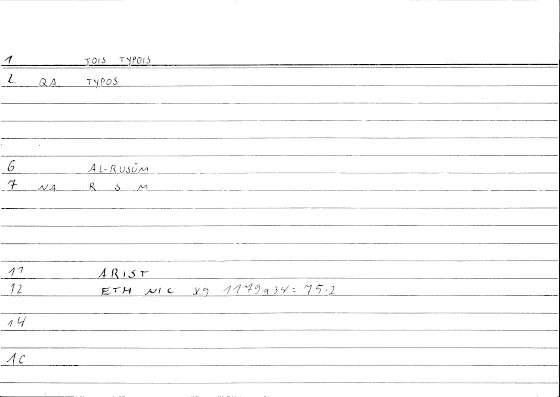 1 TOIS TYPOIS
2 QA TYPOS
6 AL-RUSŪM
7 NA R S M
11 ARIST
12 ETH NIC 1179a34 = 75.2
14